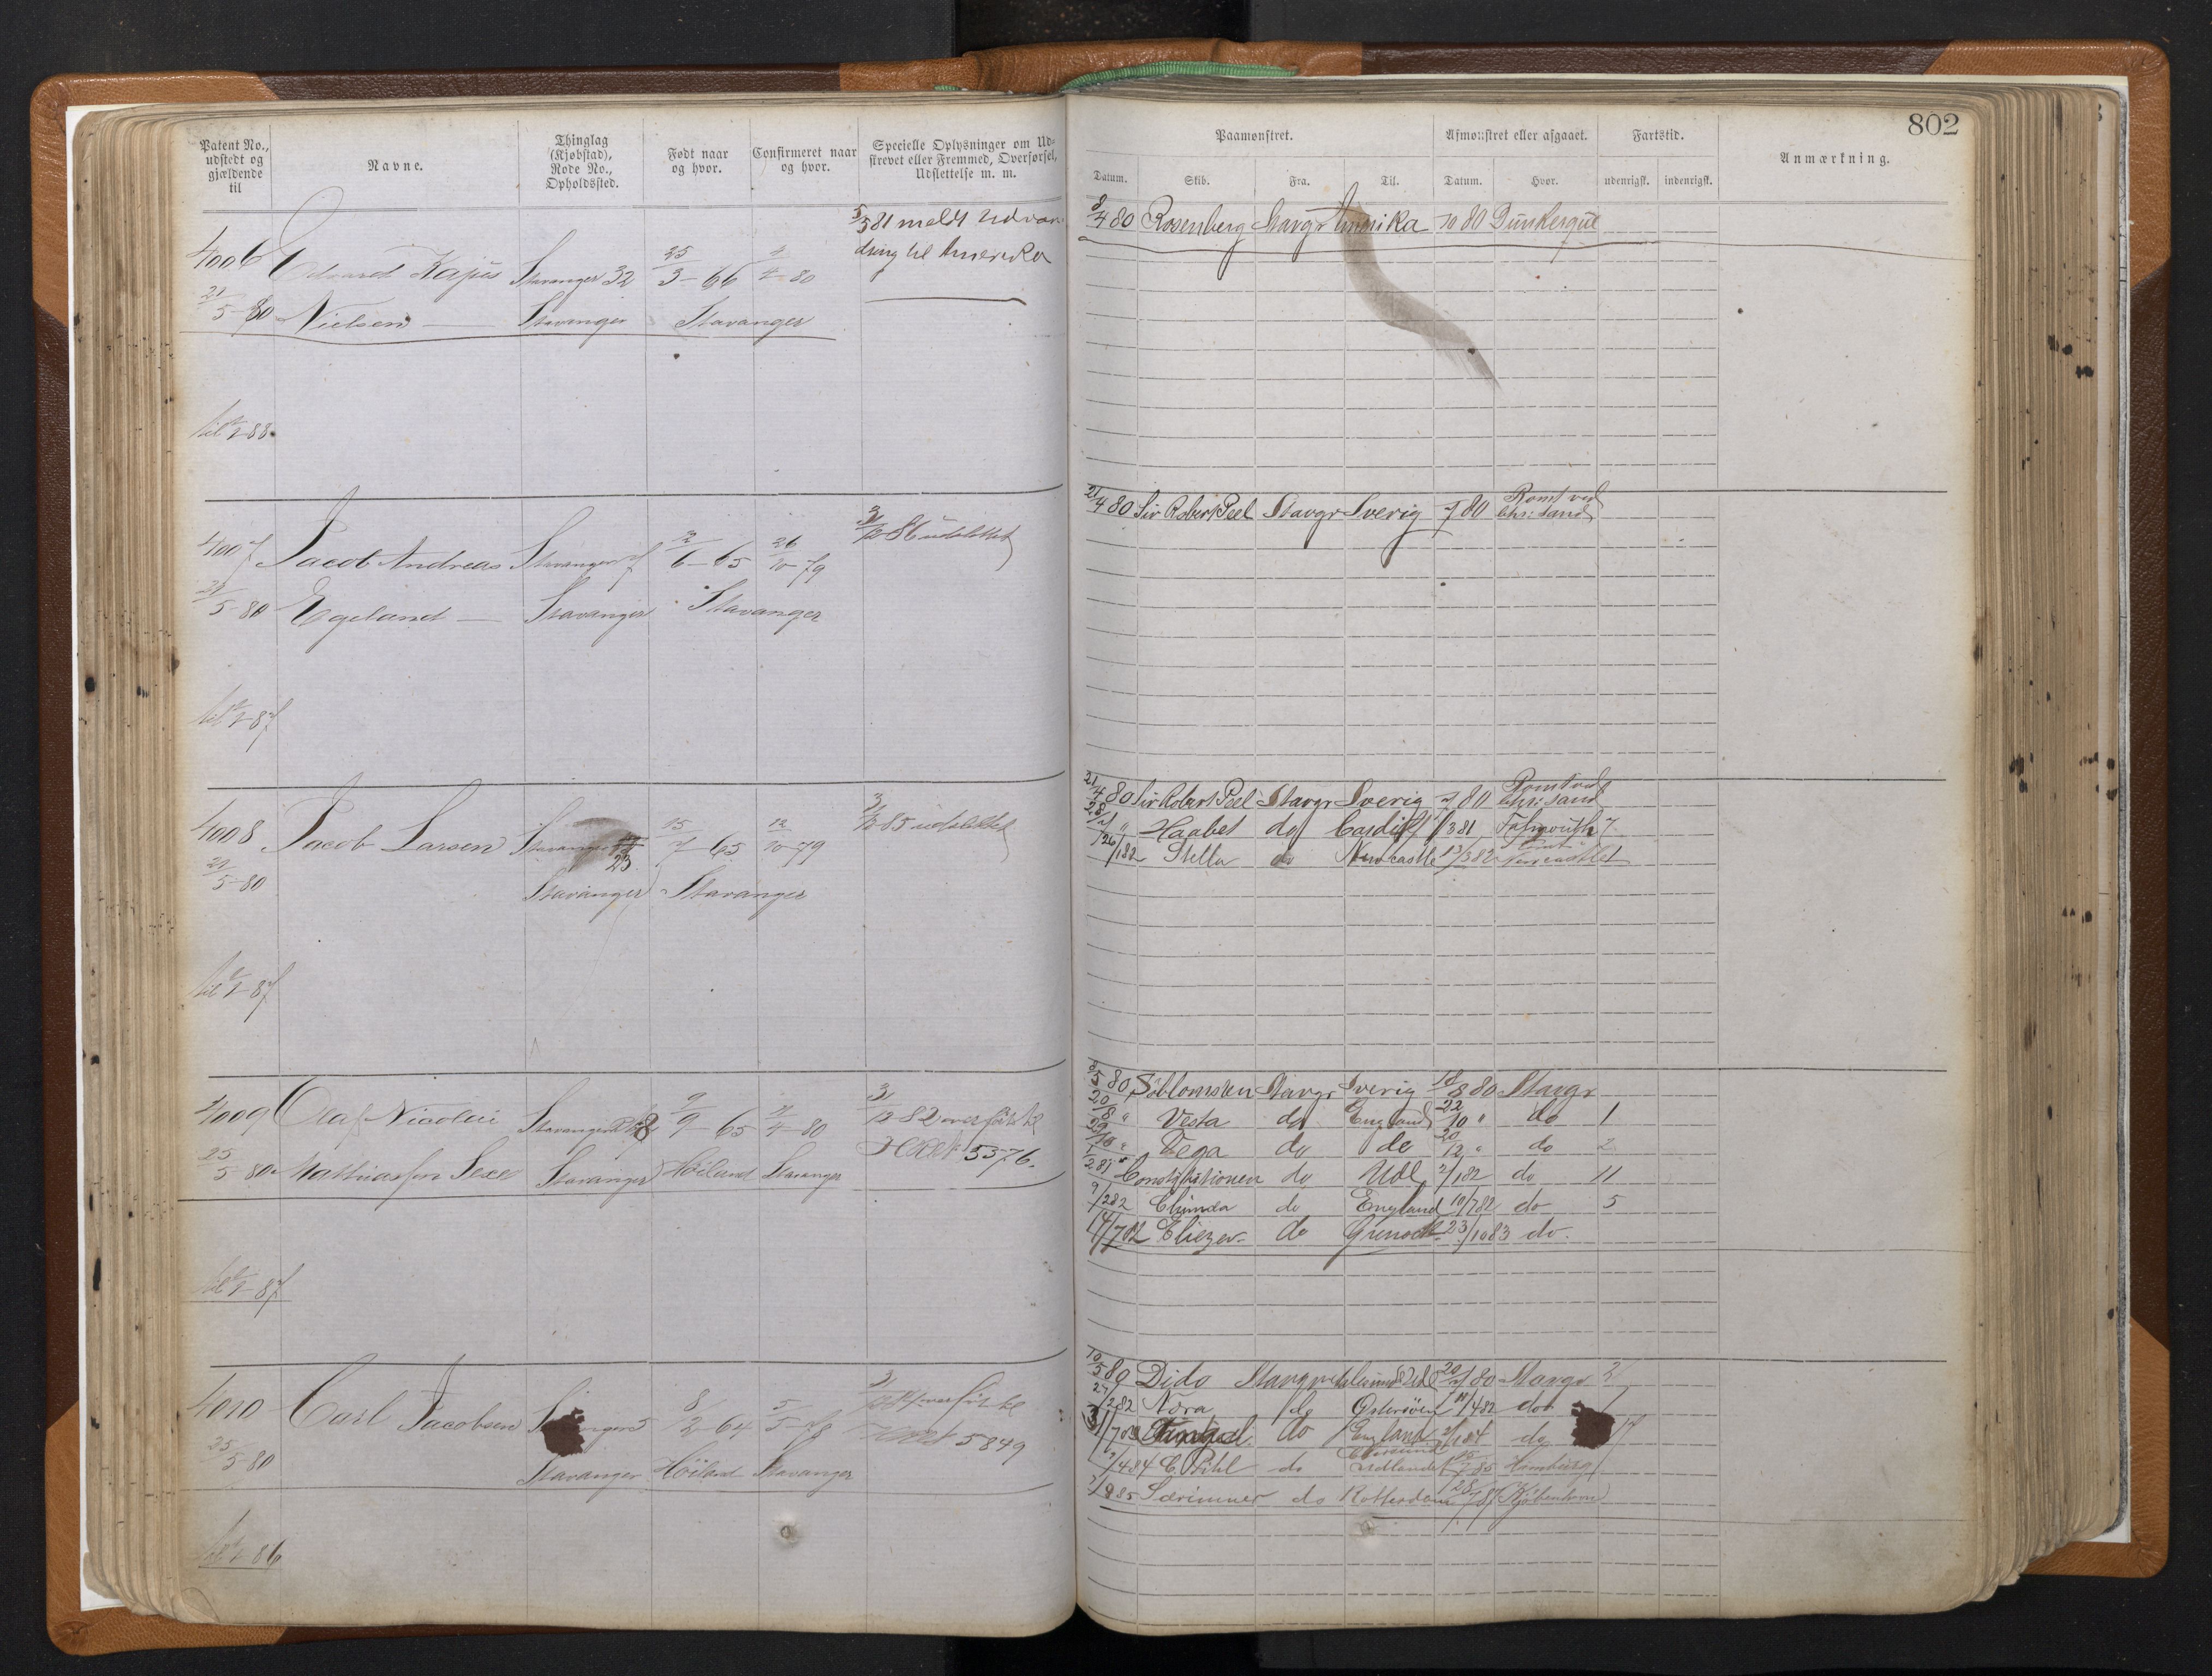 802
Patent No., udstedt og gjældende til
Navne.
Thinglag (Kjøbstad), Rode No., Opholdssted.
Født naar og hvor.
Confirmeret naar og hvor.
Specielle Oplysninger om Udskrevet eller Fremmed, Overførsel, Udslettelse m. m.
Paamønstret.
Afmønstret eller afgaaet.
Fartstid.
Anmærkning.
Datum. Skib. Fra. Til. Datum. Hvor. udenrigsk. indenrigsk.
5/5 81 meldt Udvandring til Amerika
4006 Edvard Kajus Stavanger 32 25/3-66 4/4-80
21/5-80 Nielsen Stavanger Stavanger
til 1/1-88
8/4 80 Rosenberg Stavgr Amerika /10 80 Dünkerque
4007 Jacob Andreas Stavanger 7 2/6-65 26/10-79 3/12 86 udslettet
21/5-80 Egeland Stavanger Stavanger
til 1/1-87
21/4 80 Sir Robert Peel Stavgr Sverig /7 80 Romt ved Chr:sand
4008 Jacob Larsen Stavanger 23 15/7-65 12/10-79 3/12 85 udslettet
21/5-80 Stavanger Stavanger
til 1/1-87
21/4 80 Sir Robert Peel Stavgr Sverig /7 80 Romt ved Chr:sand
28/7 " Haabet do Cardiff /3 81 Falmouth 7
26/1 82 Stella do Newcastle 13/3 82 Newcastle
4009 Olaf Nicolai Stavanger 8 9/9-65 4/4-80 3/12 82 overført til
25/5-80 Mathiassen Sexe Stavanger Höiland Stavanger 5376.
til 1/1-87
/5 80 Söblomsten Stavgr Sverig 18/8 80 Stavgr
20/8 " Vesta do England 22/10 " do 1
29/10 " Vega do do 20/12 " do 2
/2 81 Constitutionen do Udl 2/1 82 do 11
9/2 82 Chinda do England 10/7 82 do 5
14/7 82 Eliezer do Grenock 23/10 83 do.
4010 Carl Jacobsen Stavanger 5 8/2-64 5/5-78 overført til
25/5-80 Stavanger Höiland Stavanger 5849
til 1/1 86
10/5 80 Dido Stavgr Udl 20/7 80 Stavgr 2
27/2 82 Nora do Østersöen 14/4 82 do 1
31/7 do England do 17
/4 84 C. Pihl do Udlandet /7 85 Hamburg
/9 85 Særimner do Rotterdam 28/7 87 Kjøbenhavn